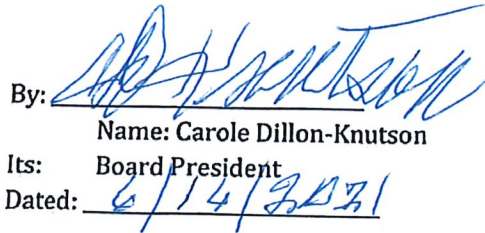 By:
Name: Carole Dillon-Knutson
Its: Board President
Dated: 6/14/2021